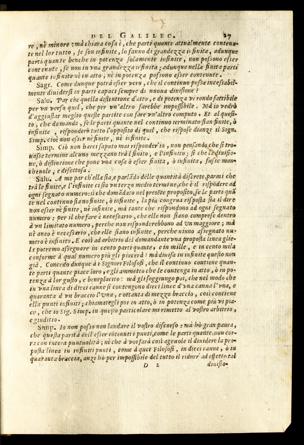 DEL GALILEO. 27
re, nè minore : mà chiara cosa è, che parti quante attualmente contenu-
te nel lor tutto, se son infinite, lo fanno di grandezza infinita, adunque
parti quante benche in potenza solamente infinite, non possono esser
contenute, se non in una grandezza infinita ; adunque nella finita parti
quante infinite nè in atto, nè in potenza possono esser contenute.
Sagr. Come dunque potrà esser vero, che il continuo possa incessabil-
mente dividersi in parti capaci sempre di nuova divisione?
Salu. Par che quella distinzione d'atto, e di potenza vi renda fattibile
per un verso quel, che per un'altro sarebbe impossibile. Mà io vedrò
d'aggiustar meglio queste partite con far un'altro computo. Et al quesi-
to, che domanda, se le parti quante nel continuo terminato sian finite, ò
infinite ; risponderò tutto l'opposto di quel, che rispose dianzi il Sign.
Simp. cioè non esser nè finite, nè infinite.
Simp. Ciò non harei saputo mai risponder'io, non pensando, che si tro-
vasse termine alcuno mezzano trà il finito, e l'infinito ; si che la divisio-
ne, ò distinzione che pone una cosa ò esser finita, ò infinita, fusse man-
chevole, e difettosa.
Salu. A me par ch'ella sia, e parlando delle quantità discrete, parmi che
trà le finite, e l'infinite ci sia un terzo medio termine, che è il rispondere ad
ogni segnato numero: si che domandato nel presente proposito, se le parti quã
te nel continuo siano finite, ò infinite, la più congrua risposta sia il dire
non esser nè finite, nè infinite, mà tante che rispondono ad ogni segnato
numero : per il che fare è necessario, che elle non siano comprese dentro
à un limitato numero, perche non risponderebbono ad un maggiore ; mà
nè anco è necessario, che elle siano infinite, perche niuno assegnato nu-
mero è infinito. E così ad arbitrio del domandante una proposta linea glie-
le potremo assegnare in cento parti quante, e in mille, e in cento mila
conforme à qual numero più gli piacerà : mà divisa in infinite questo non
già. Concedo dunque à i Signori Filosofi, che il continuo contiene quan-
te parti quante piace loro, e gli ammetto che le contenga in atto, ò in po-
tenza à lor gusto, e beneplacito : mà gli soggiungo poi, che nel modo che
in una linea di dieci canne si contengono dieci linee d'una canna l'una, e
quaranta d'un braccio l'una, e ottanta di mezzo braccio, così contiene
ella punti infiniti ; chiamategli poi in atto, ò in potenza come più vi pia-
ce, che io Sig. Simp. in questo particolare mi rimetto al vostro arbitrio,
e giudizio.
Simp. Io non posso non laudare il vostro discorso : mà hò gran paura,
che questa parità dell'esser contenuti i punti, come le parti quante, non cor-
ra con intera puntualità ; nè che à voi sarà così agevole il dividere la pro-
posta linea in infiniti punti, come à quei Filosofi, in dieci canne, ò in
quaranta braccia, anzi hò per impossibile del tutto il ridurr' ad effetto tal
D 2 divisio-